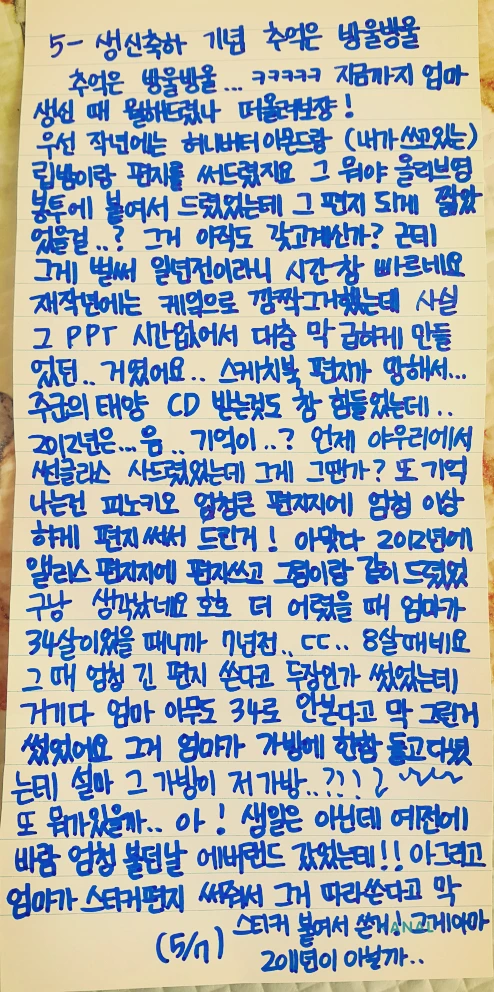 5- 생신축하 기념 추억은 방울방울
추억은 방울방울... ㅋㅋㅋㅋㅋ 지금까지 엄마
생신 때 뭘해드렸나 떠올려보쟝!
우선 작년에는 허니버터아몬드랑 (내가 쓰고있는)
립밤이랑 편지를 써드렸지요 그 뭐야 올리브영
봉투에 붙여서 드렸었는데 그 편지 되게 짧았
었을걸..? 그거 아직도 갖고계신가? 근데
그게 벌써 일년전이라니 시간 참 빠르네요
재작년에는 케잌으로 깜짝그거했는데 사실
그 PPT 시간없어서 대충 막 급하게 만들
었던.. 거였어요.. 스케치북 편지가 망해서...
주군의 태양 CD 받는것도 참 힘들었는데..
2012년은... 음.. 기억이..? 언제 야우리에서
썬글라스 사드렸었는데 그게 그땐가? 또 기억
나는건 피노키오 엄청큰 편지지에 엄청 이상
하게 편지써서 드린거! 아맞다 2012년에
앨리스 편지지에 편지쓰고 그림이랑 같이 드렸었
구낭 생각났네요 호호 더 어렸을 때 엄마가
34살이었을 때니까 7년전.. ㄷㄷ.. 8살때네요
그 때 엄청 긴 편지 쓴다고 두장인가 썼었는데
거기다 엄마 아무도 34로 안본다고 막 그런거
썼었어요 그거 엄마가 가방에 한참 들고다녔
는데 설마 그 가방이 저가방..??!?
또 뭐가있을까.. 아! 생일은 아닌데 예전에
바람 엄청 불던날 에버랜드 갔었는데!! 아그리고
엄마가 스티커편지 써줘서 그거 따라쓴다고 막
스티커 붙여서 쓴거! 그게아마
(5/7) 2011년이 아닐까..